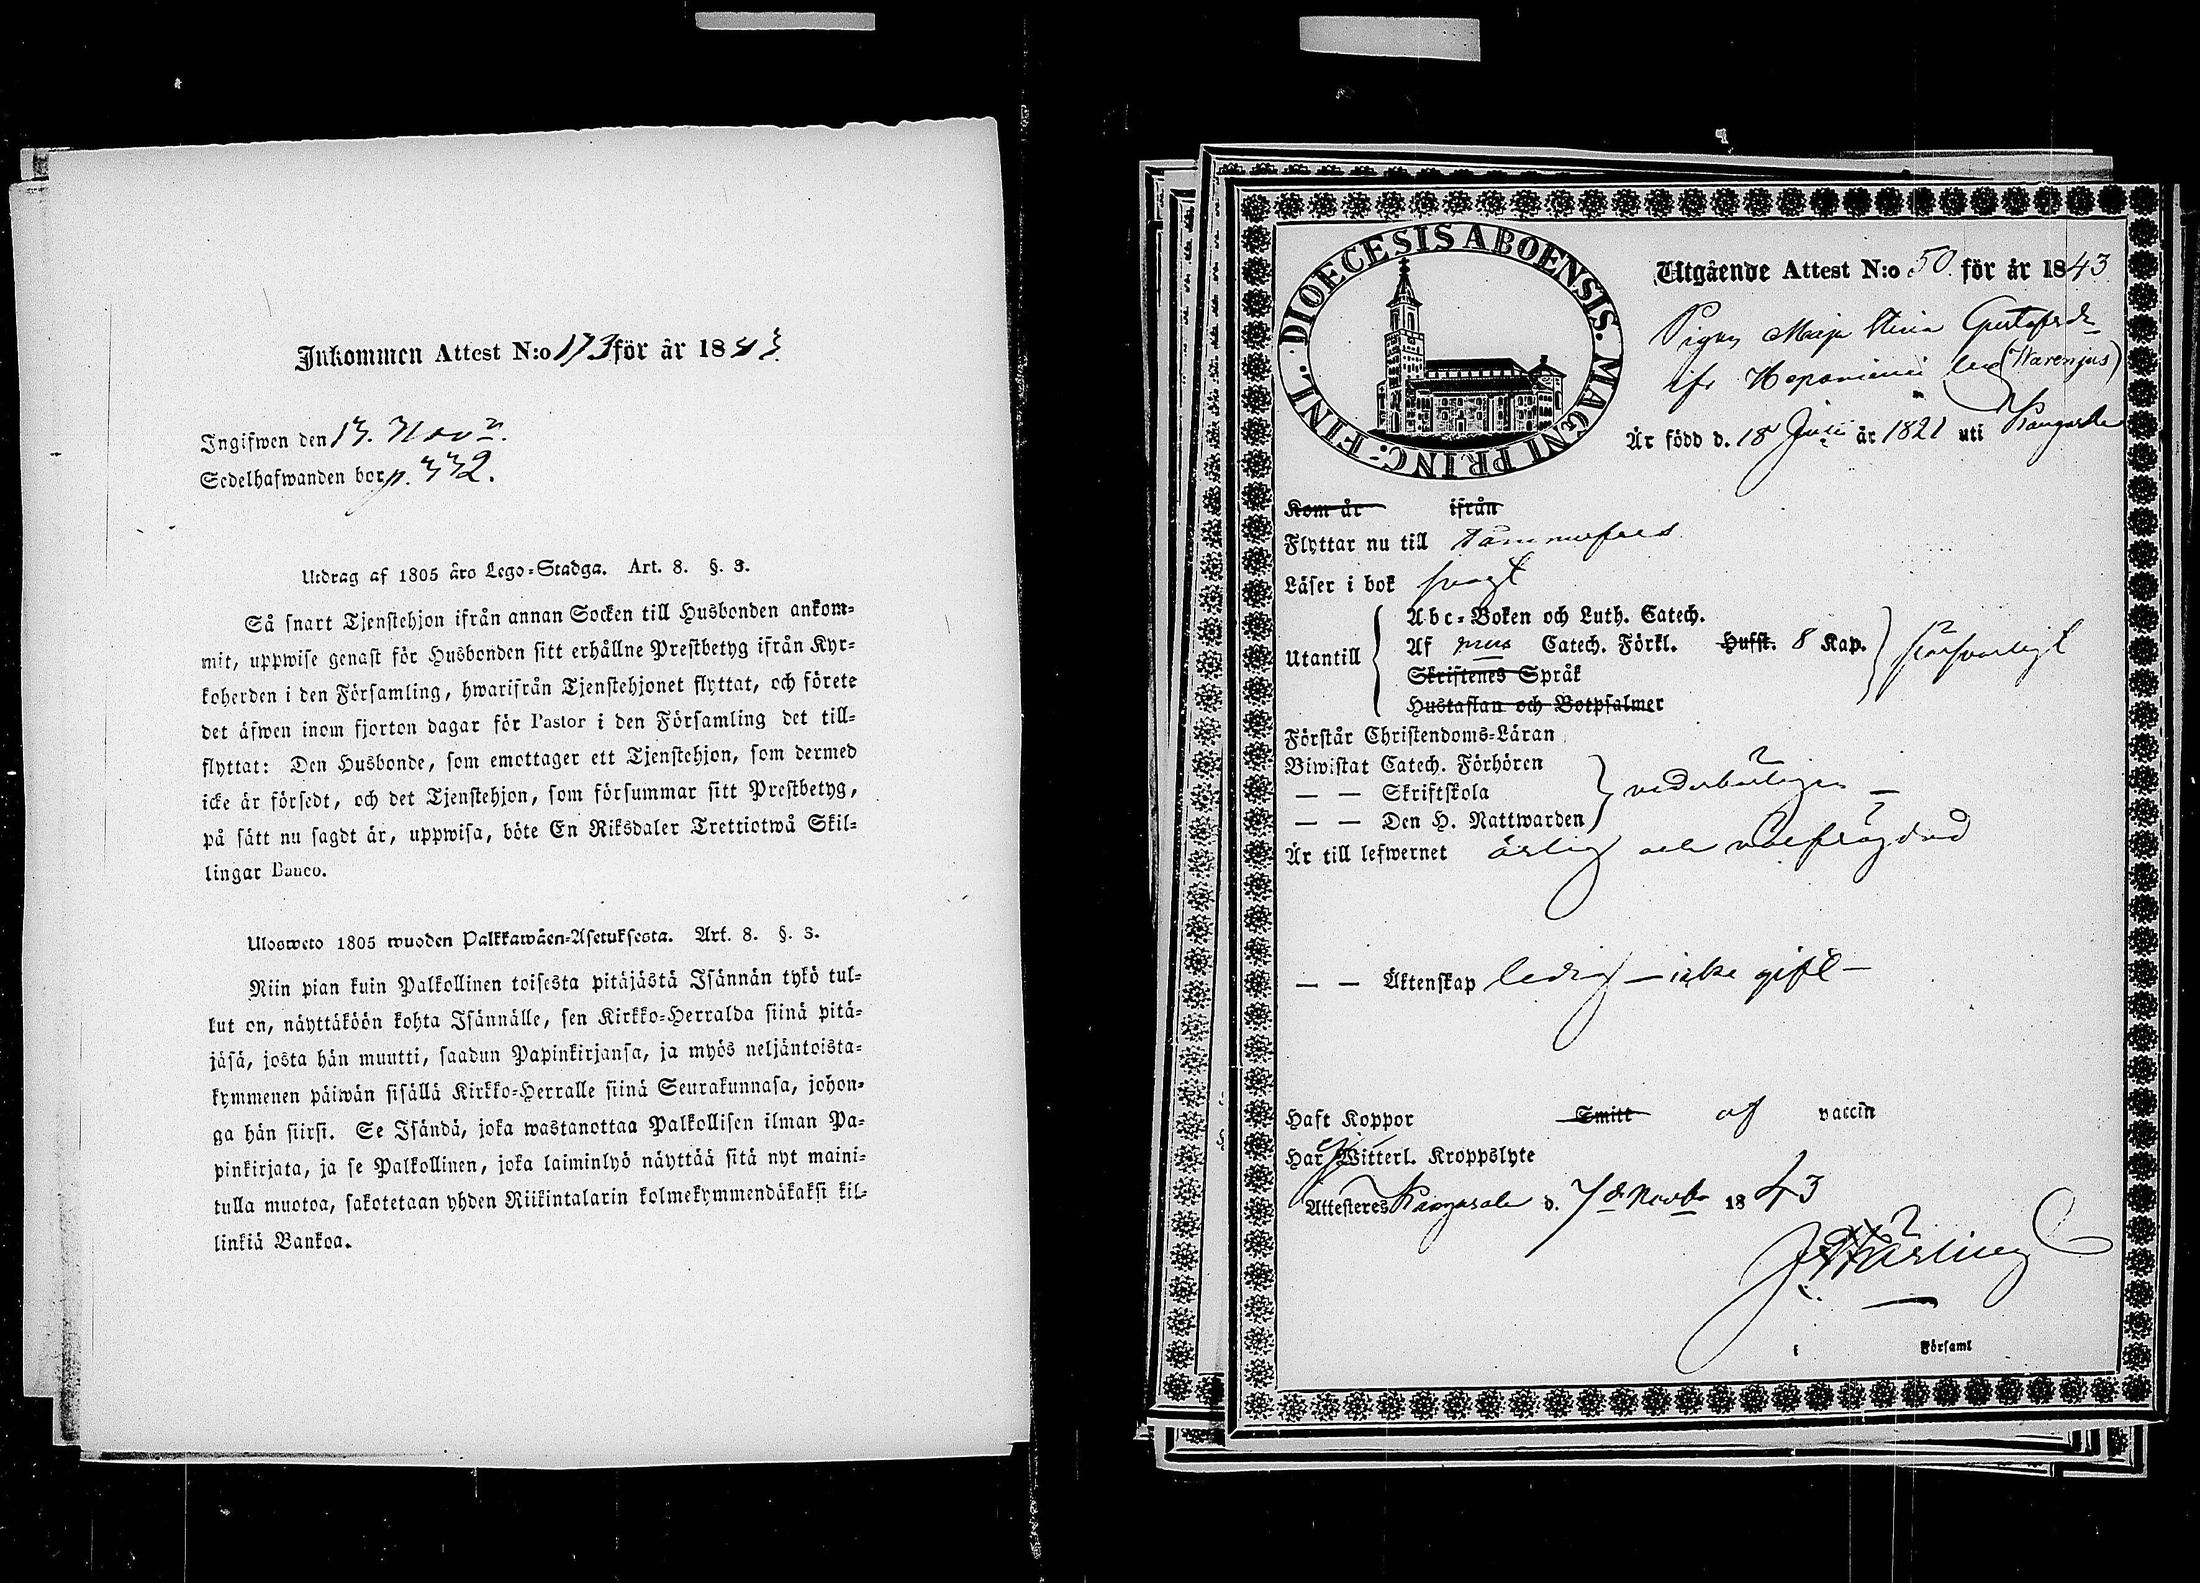 Inkommen Attest N:o 173 för år 1843.
Ingifwen den 13. Nov.
Sedelhafwanden bor p. 332.
Utdrag af 1805 års Lego-Stadga. Art. 8. §. 3.
Så snart Tjenstehjon ifrån annan Socken till Husbonden ankom-
mit, uppwise genast för Husbonden sitt erhållne Prestbetyg ifrån Kyr-
koherden i den Församling, hwarifrån Tjenstehjonet flyttat, och förete
det äfwen inom fjorton dagar för Pastor i den Församling det till-
flyttat: Den Husbonde, som emottager ett Tjenstehjon, som dermed
icke är försedt, och det Tjenstehjon, som försummar sitt Prestbetyg,
på sätt nu sagdt är, uppwisa, böte En Riksdaler Trettiotwå Skil-
lingar Banco.
Ulosweto 1805 wuoden Palkkawäen-Asetuksesta. Art. 8. §. 3.
Niin pian kuin Palkollinen toisesta pitäjästä Isännän tykö tul-
lut on, näyttäköön kohta Isännälle, sen Kirkko-Herralda siinä pitä-
jäsä, josta hän muutti, saadun Papinkirjansa, ja myös neljäntoista-
kymmenen päiwän sisällä Kirkko-Herralle siinä Seurakunnasa, johon-
ga hän siirsi. Se Isändä, joka wastanottaa Palkollisen ilman Pa-
pinkirjata, ja se Palkollinen, joka laiminlyö näyttää sitä nyt maini-
tulla muotoa, sakotetaan yhden Riikintalarin kolmekymmendäkaksi kil-
linkiä Bankoa.
DIOECESIS ABOENSIS. MAGNI PRINC: FINL.
Utgående Attest N:o 50. för år 1843
Pigan Maja Stina Gustafsdr
ifr (Warenjus)
Är född d. 18 Juli år 1821 uti Kangasala
Kom år ifrån
Flyttar nu till Tammerfors
Läser i bok svagt
Utantill
Abc-Boken och Luth. Catech.
Af Catech. Förkl. Hufst. 8 Kap.
försvarligt
Skriftenes Språk
Hustaflan och Botpsalmer
Förstår Christendoms-Läran
Biwistat Catech. Förhören
— — Skriftskola
vederbörligen —
— — Den H. Nattwarden
Är till lefwernet ärlig och välfrägdad
— — Äktenskap ledig — icke gift —
Haft Koppor Smitt af vaccin
Har ej Witterl. Kroppslyte
Attesteres Kangasala d. 7de Novb. 1843
i Församl